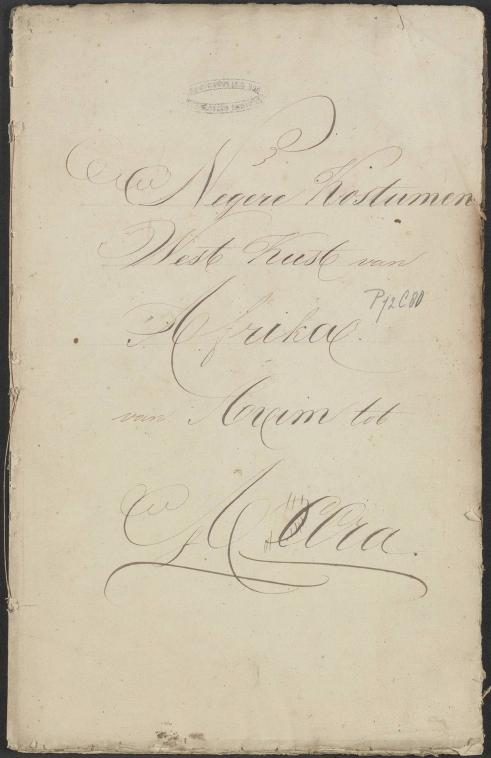 Negere Kostumen
West Kust van
Afrika.
P 12 C 80
van Axim tot
Accra.